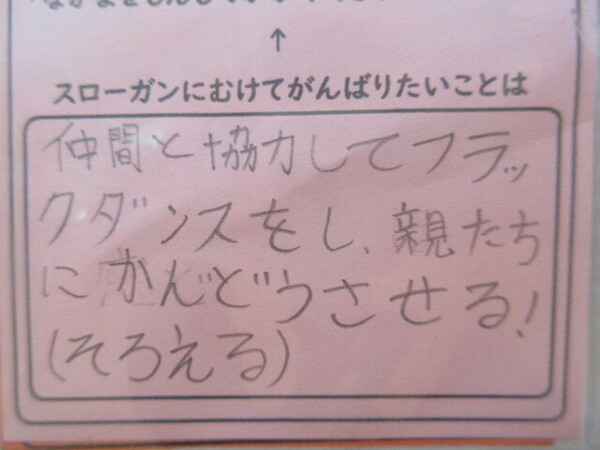 ↑
スローガンにむけてがんばりたいことは
仲間と協力してフラッ
クダンスをし、親たち
にかんどうさせる!
(そろえる)